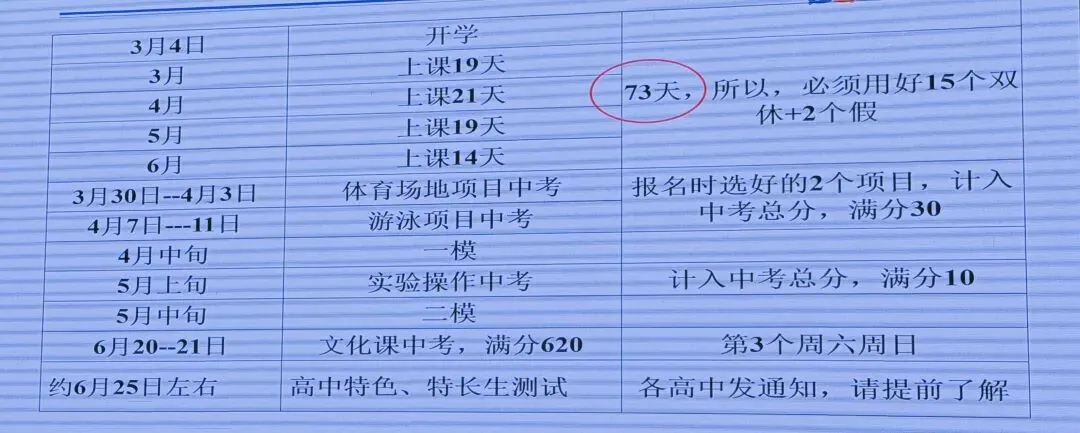 3月4日 开学
3月 上课19天
4月 上课21天
73天，所以，必须用好15个双
休+2个假
5月 上课19天
6月 上课14天
3月30日--4月3日 体育场地项目中考
报名时选好的2个项目，计入
中考总分，满分30
4月7日---11日 游泳项目中考
4月中旬 一模
5月上旬 实验操作中考 计入中考总分，满分10
5月中旬 二模
6月20--21日 文化课中考，满分620 第3个周六周日
约6月25日左右 高中特色、特长生测试 各高中发通知，请提前了解